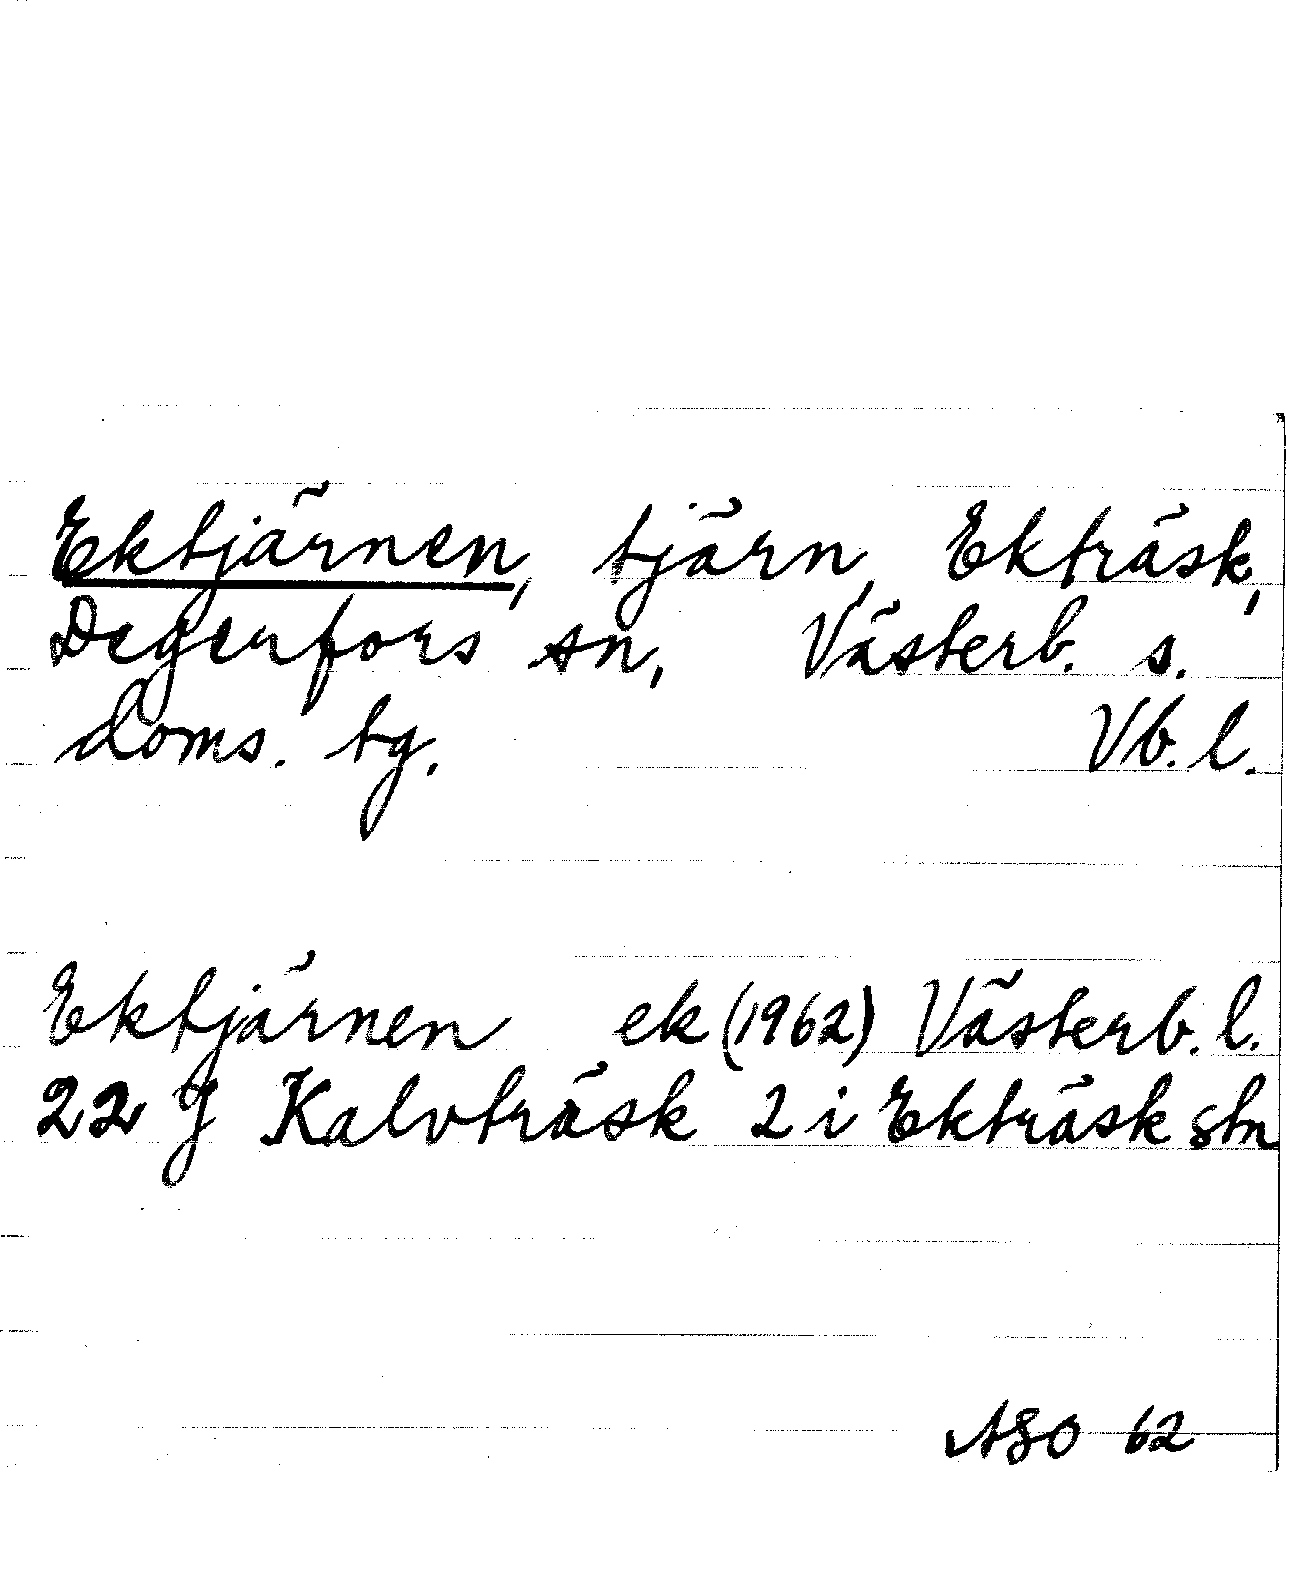 Ektjärnen, tjärn, Ekträsk,
Degerfors sn, Västerb. s.
doms. tg. Vb. l.
Ektjärnen ek (1962) Västerb. l.
22 J Kalvträsk 2 i Ekträsk stn
ASO 62